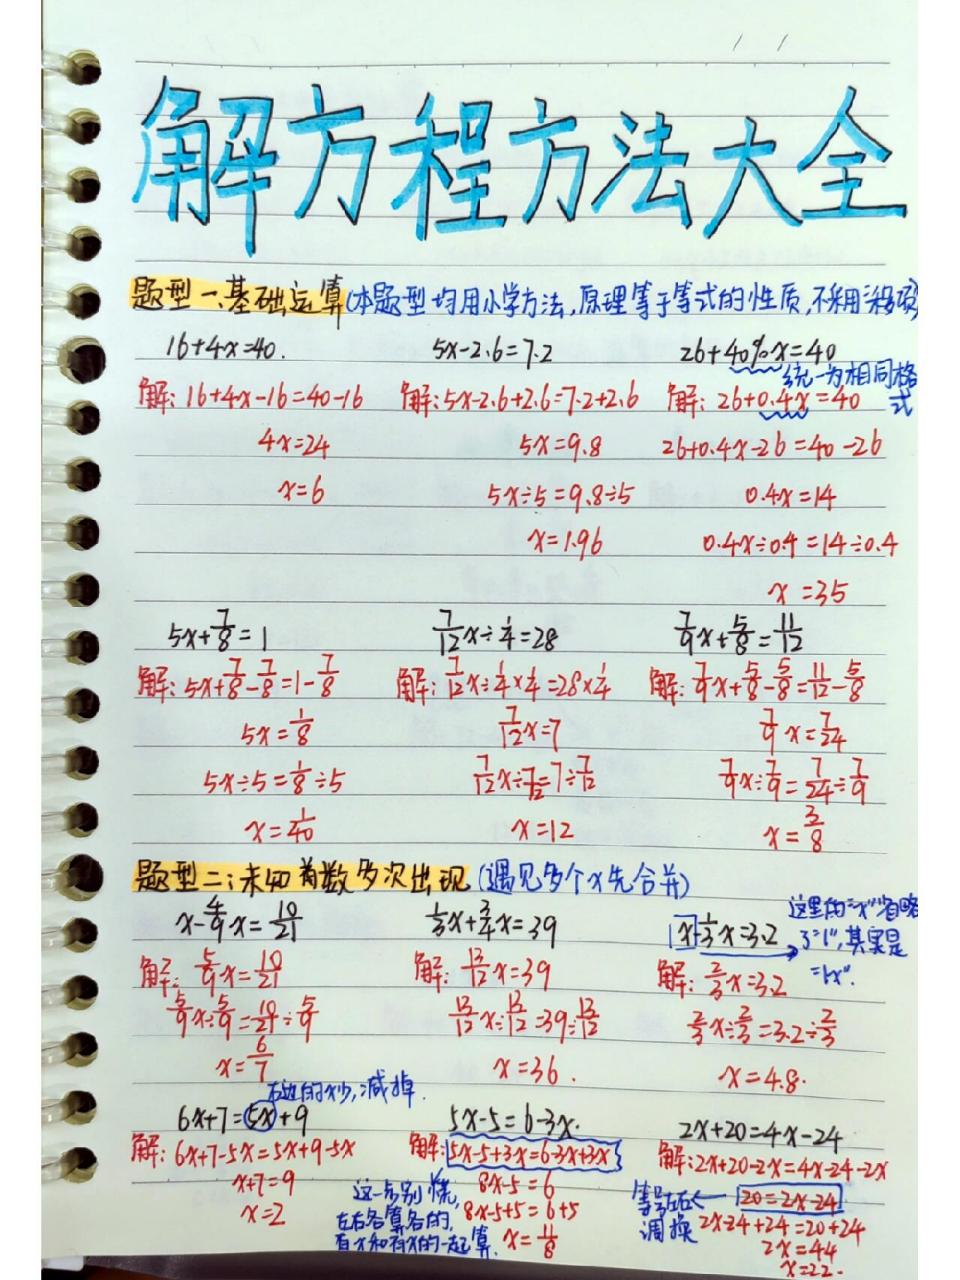 解方程方法大全
题型一:基础运算(本题型均用小学方法,原理等于等式的性质,不采用移项)
16+4x=40.
解: 16+4x-16=40-16
4x=24
x=6
5x-2.6=7.2
解: 5x-2.6+2.6=7.2+2.6
5x=9.8
5x÷5=9.8÷5
x=1.96
26+40%x=40
统一为相同格式
解: 26+0.4x=40
26+0.4x-26=40-26
0.4x=14
0.4x÷0.4=14÷0.4
x=35
5x+7/8=1
解: 5x+7/8-7/8=1-7/8
5x=1/8
5x÷5=1/8÷5
x=1/40
7/12x÷1/4=28
解: 7/12x÷1/4×1/4=28×1/4
7/12x=7
7/12x÷7/12=7÷7/12
x=12
7/9x+5/8=11/12
解: 7/9x+5/8-5/8=11/12-5/8
7/9x=7/24
7/9x÷7/9=7/24÷7/9
x=3/8
题型二:未知数多次出现(遇见多个x先合并)
x-4/9x=10/21
解: 5/9x=10/21
5/9x÷5/9=10/21÷5/9
x=6/7
1/3x+3/4x=39
解: 13/12x=39
13/12x÷13/12=39÷13/12
x=36.
x-1/3x=3.2
这里的"x"省略
了"1",其实是
"1x".
解: 2/3x=3.2
2/3x÷2/3=3.2÷2/3
x=4.8.
右边的x少,减掉.
6x+7=5x+9
解: 6x+7-5x=5x+9-5x
x+7=9
x=2
5x-5=6-3x.
解: 5x-5+3x=6-3x+3x
这一步别慌,
左右各算各的,
有x和有x的一起算.
8x-5=6
8x-5+5=6+5
x=11/8
2x+20=4x-24
解: 2x+20-2x=4x-24-2x
等号左右
调换
20=2x-24
2x-24+24=20+24
2x=44
x=22.